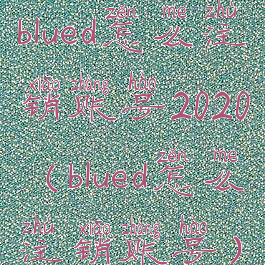 zěn me zhù
blued怎么注
xiāo zhàng hào
销账号2020
zěn me
(blued怎么
zhù xiāo zhàng hào
注销账号)